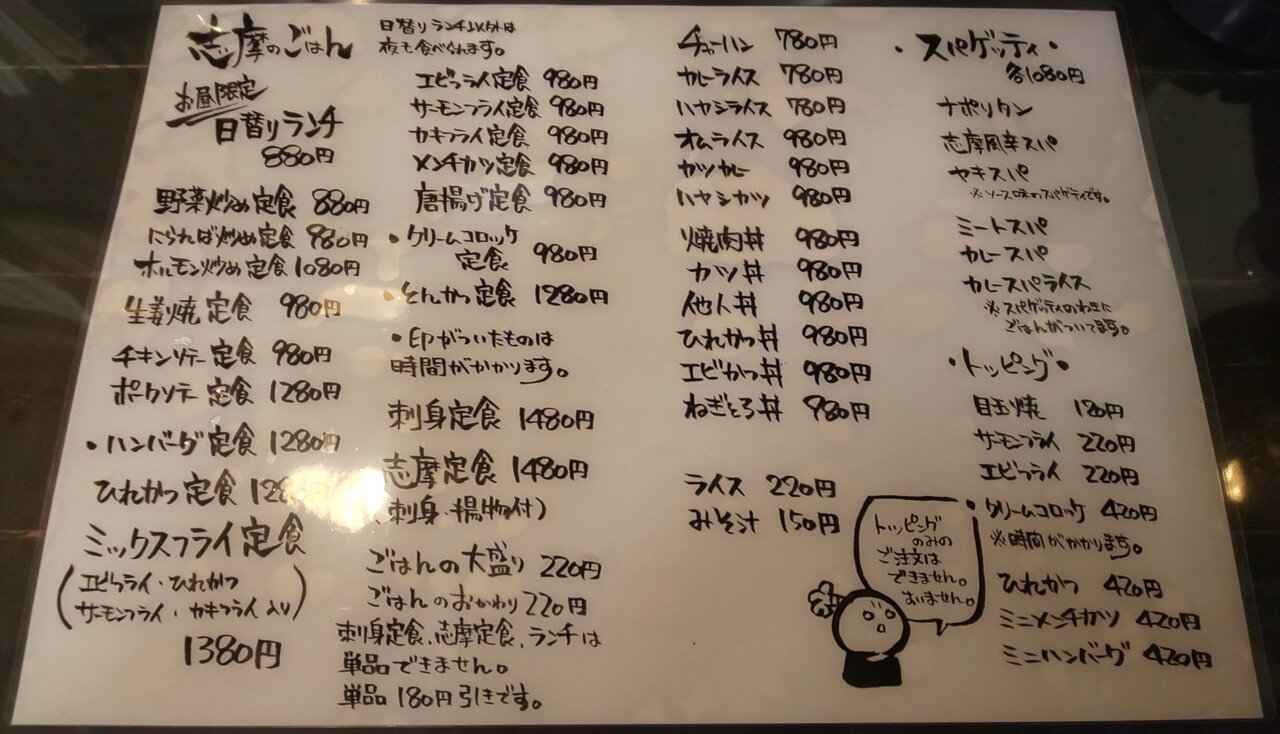 志摩のごはん
日替りランチ以外は
夜も食べられます。
お昼限定
日替りランチ
880円
野菜炒め定食 880円
にらればば炒め定食 980円
ホルモン炒め定食 1080円
生姜焼定食 980円
チキンソテー定食 980円
ポークソテー定食 1280円
・ハンバーグ定食 1280円
ひれかつ定食
ミックスフライ定食
(エビフライ・ひれかつ
サーモンフライ・カキフライ入り)
1380円
エビフライ定食 980円
サーモンフライ定食 980円
カキフライ定食 980円
メンチカツ定食 980円
唐揚げ定食 980円
・クリームコロッケ
定食 980円
・とんかつ定食 1280円
・印がついたものは
時間がかかります。
刺身定食 1480円
志摩定食 1480円
(刺身・揚物付)
ごはんの大盛り 220円
ごはんのおかわり 220円
刺身定食、志摩定食、ランチは
単品できません。
単品 180円引きです。
チャーハン 780円
カレーライス 780円
ハヤシライス 780円
オムライス 980円
カツカレー 980円
ハヤシカツ 980円
焼肉丼 980円
カツ丼 980円
他人丼 980円
ひれかつ丼 980円
エビかつ丼 980円
ねぎとろ丼 980円
ライス 220円
みそ汁 150円
トッピング
のみの
ご注文は
できません。
すいません。
・スパゲッティ・
各1080円
ナポリタン
志摩風辛スパ
ヤキスパ
※ソース味のスパゲティです。
ミートスパ
カレースパ
カレースパライス
※スパゲッティのわきに
ごはんがついてます。
・トッピング・
目玉焼 120円
サーモンフライ 220円
エビフライ 220円
・クリームコロッケ 420円
※時間がかかります。
ひれかつ 420円
ミニメンチカツ 420円
ミニハンバーグ 420円